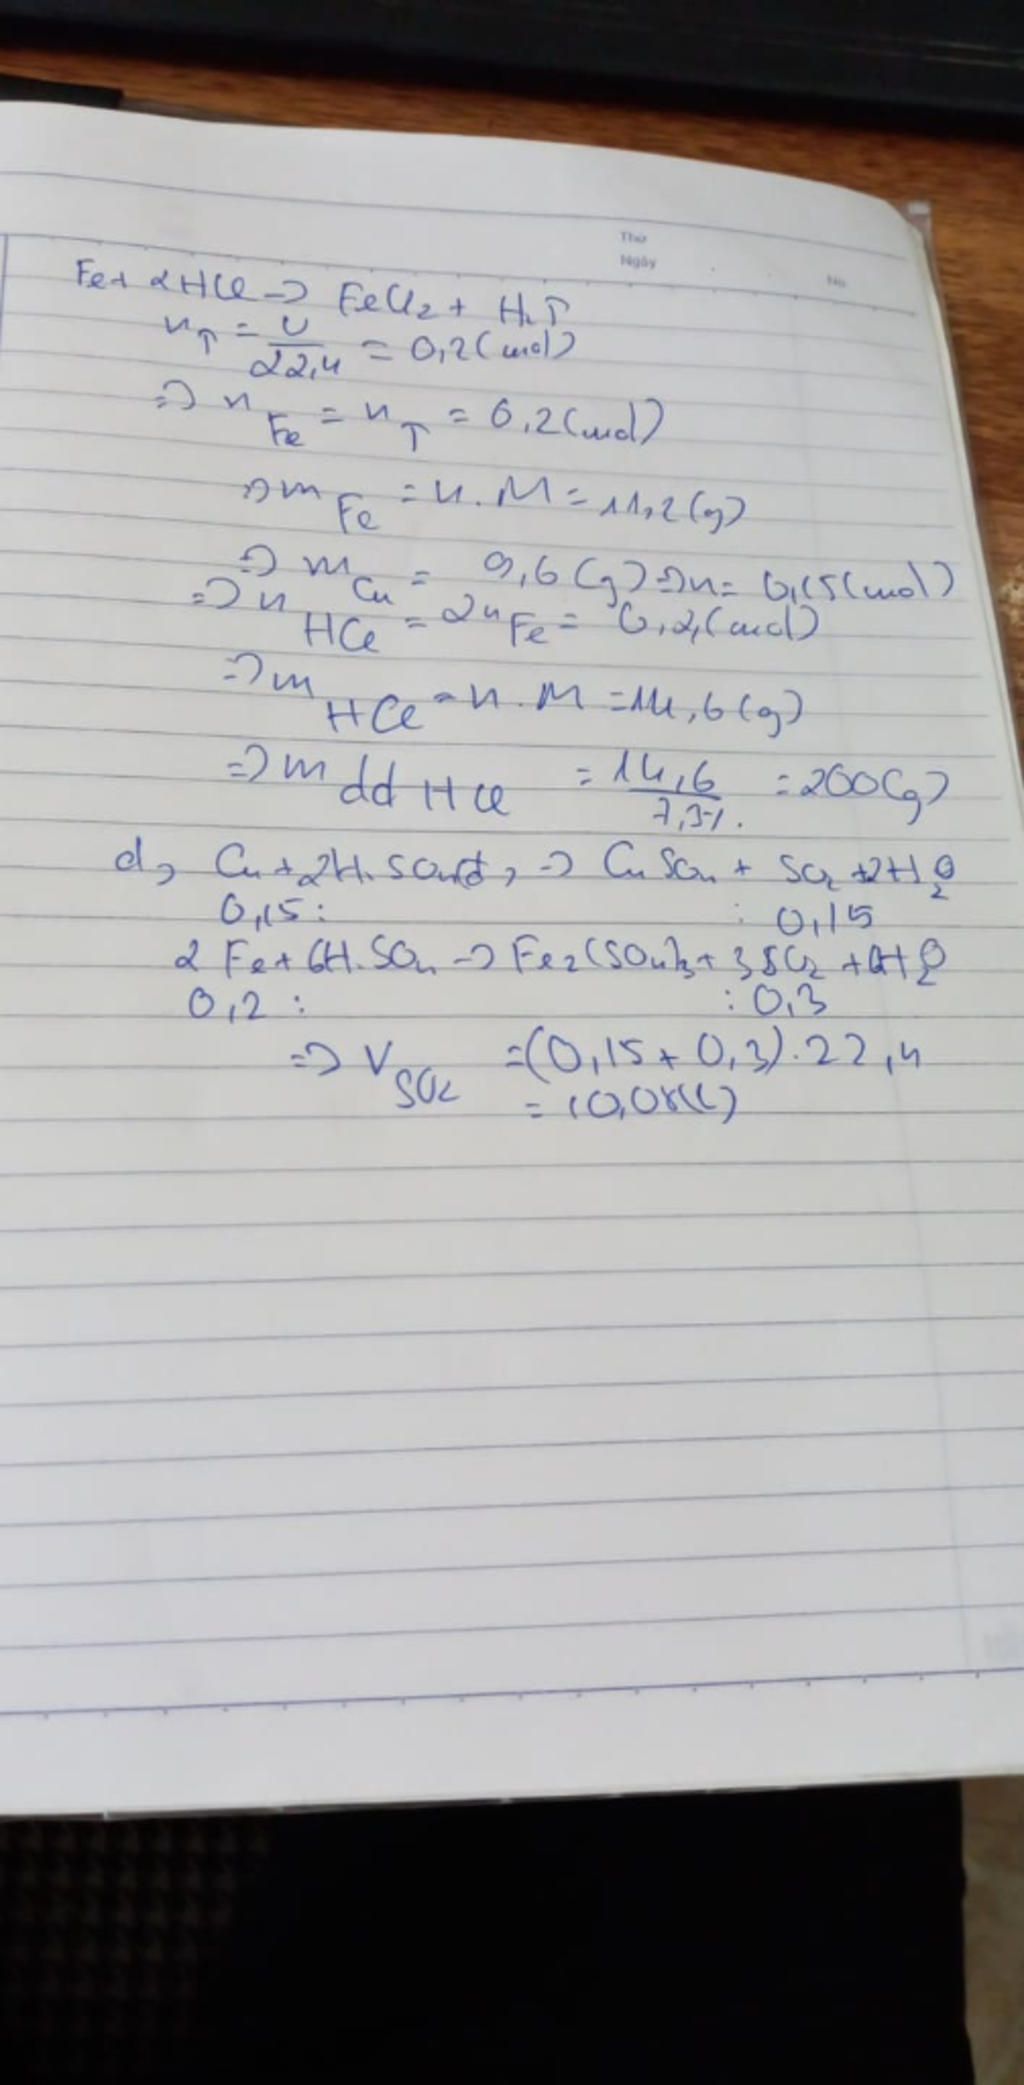 Thứ
Ngày
No
Fe + 2HCl => FeCl2 + H2↑
n↑ = V/22,4 = 0,2(mol)
=> nFe = n↑ = 0,2(mol)
=> mFe = n.M = 11,2(g)
=> mCu = 9,6(g) => n = 0,15(mol)
=> nHCl = 2nFe = 0,2(mol)
=> mHCl = n.M = 14,6(g)
=> mddHCl = 14,6/7,3% = 200(g)
d, Cu + 2H2SO4đ, -> CuSO4 + SO2 + 2H2O
0,15 : : 0,15
2Fe + 6H2SO4 -> Fe2(SO4)3 + 3SO2 + 6H2O
0,2 : : 0,3
=> VSO2 = (0,15 + 0,3).22,4
= 10,08(l)